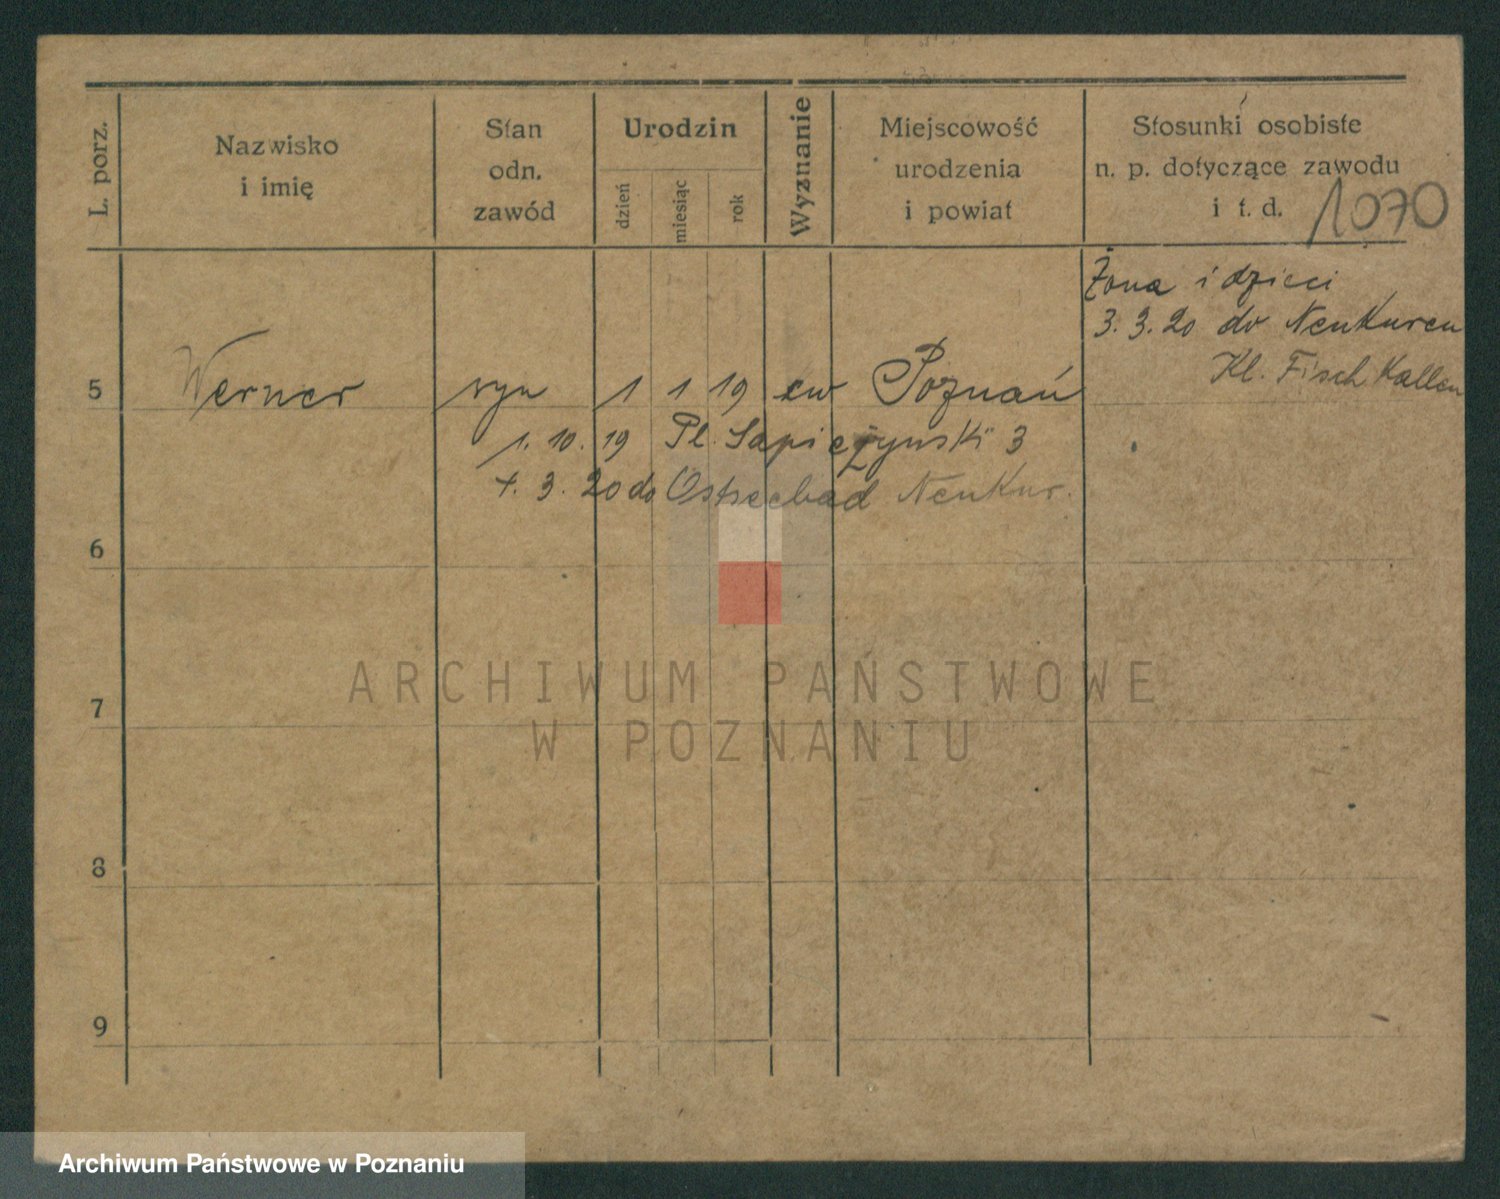 L. porz.
Nazwisko
i imię
Stan
odn.
zawód
Urodzin
dzień
miesiąc
rok
Wyznanie
Miejscowość
urodzenia
i powiat
Stosunki osobiste
n. p. dotyczące zawodu
i t. d.
1070
Żona i dzieci
3. 3. 20 do Neukuren
Kl. Fisch Kallen
5 Werner syn 1 1 19 ew Poznań
1. 10. 19 Pl. Sapieżynski 3
+. 3. 20 do Ostseebad Neukur.
6
7
8
9
ARCHIWUM PAŃSTWOWE
W POZNANIU
Archiwum Państwowe w Poznaniu